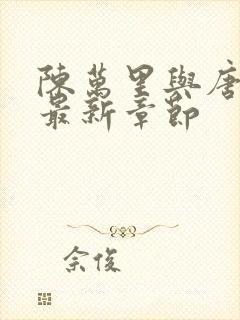 陳萬里與唐
最新章節
佘俊